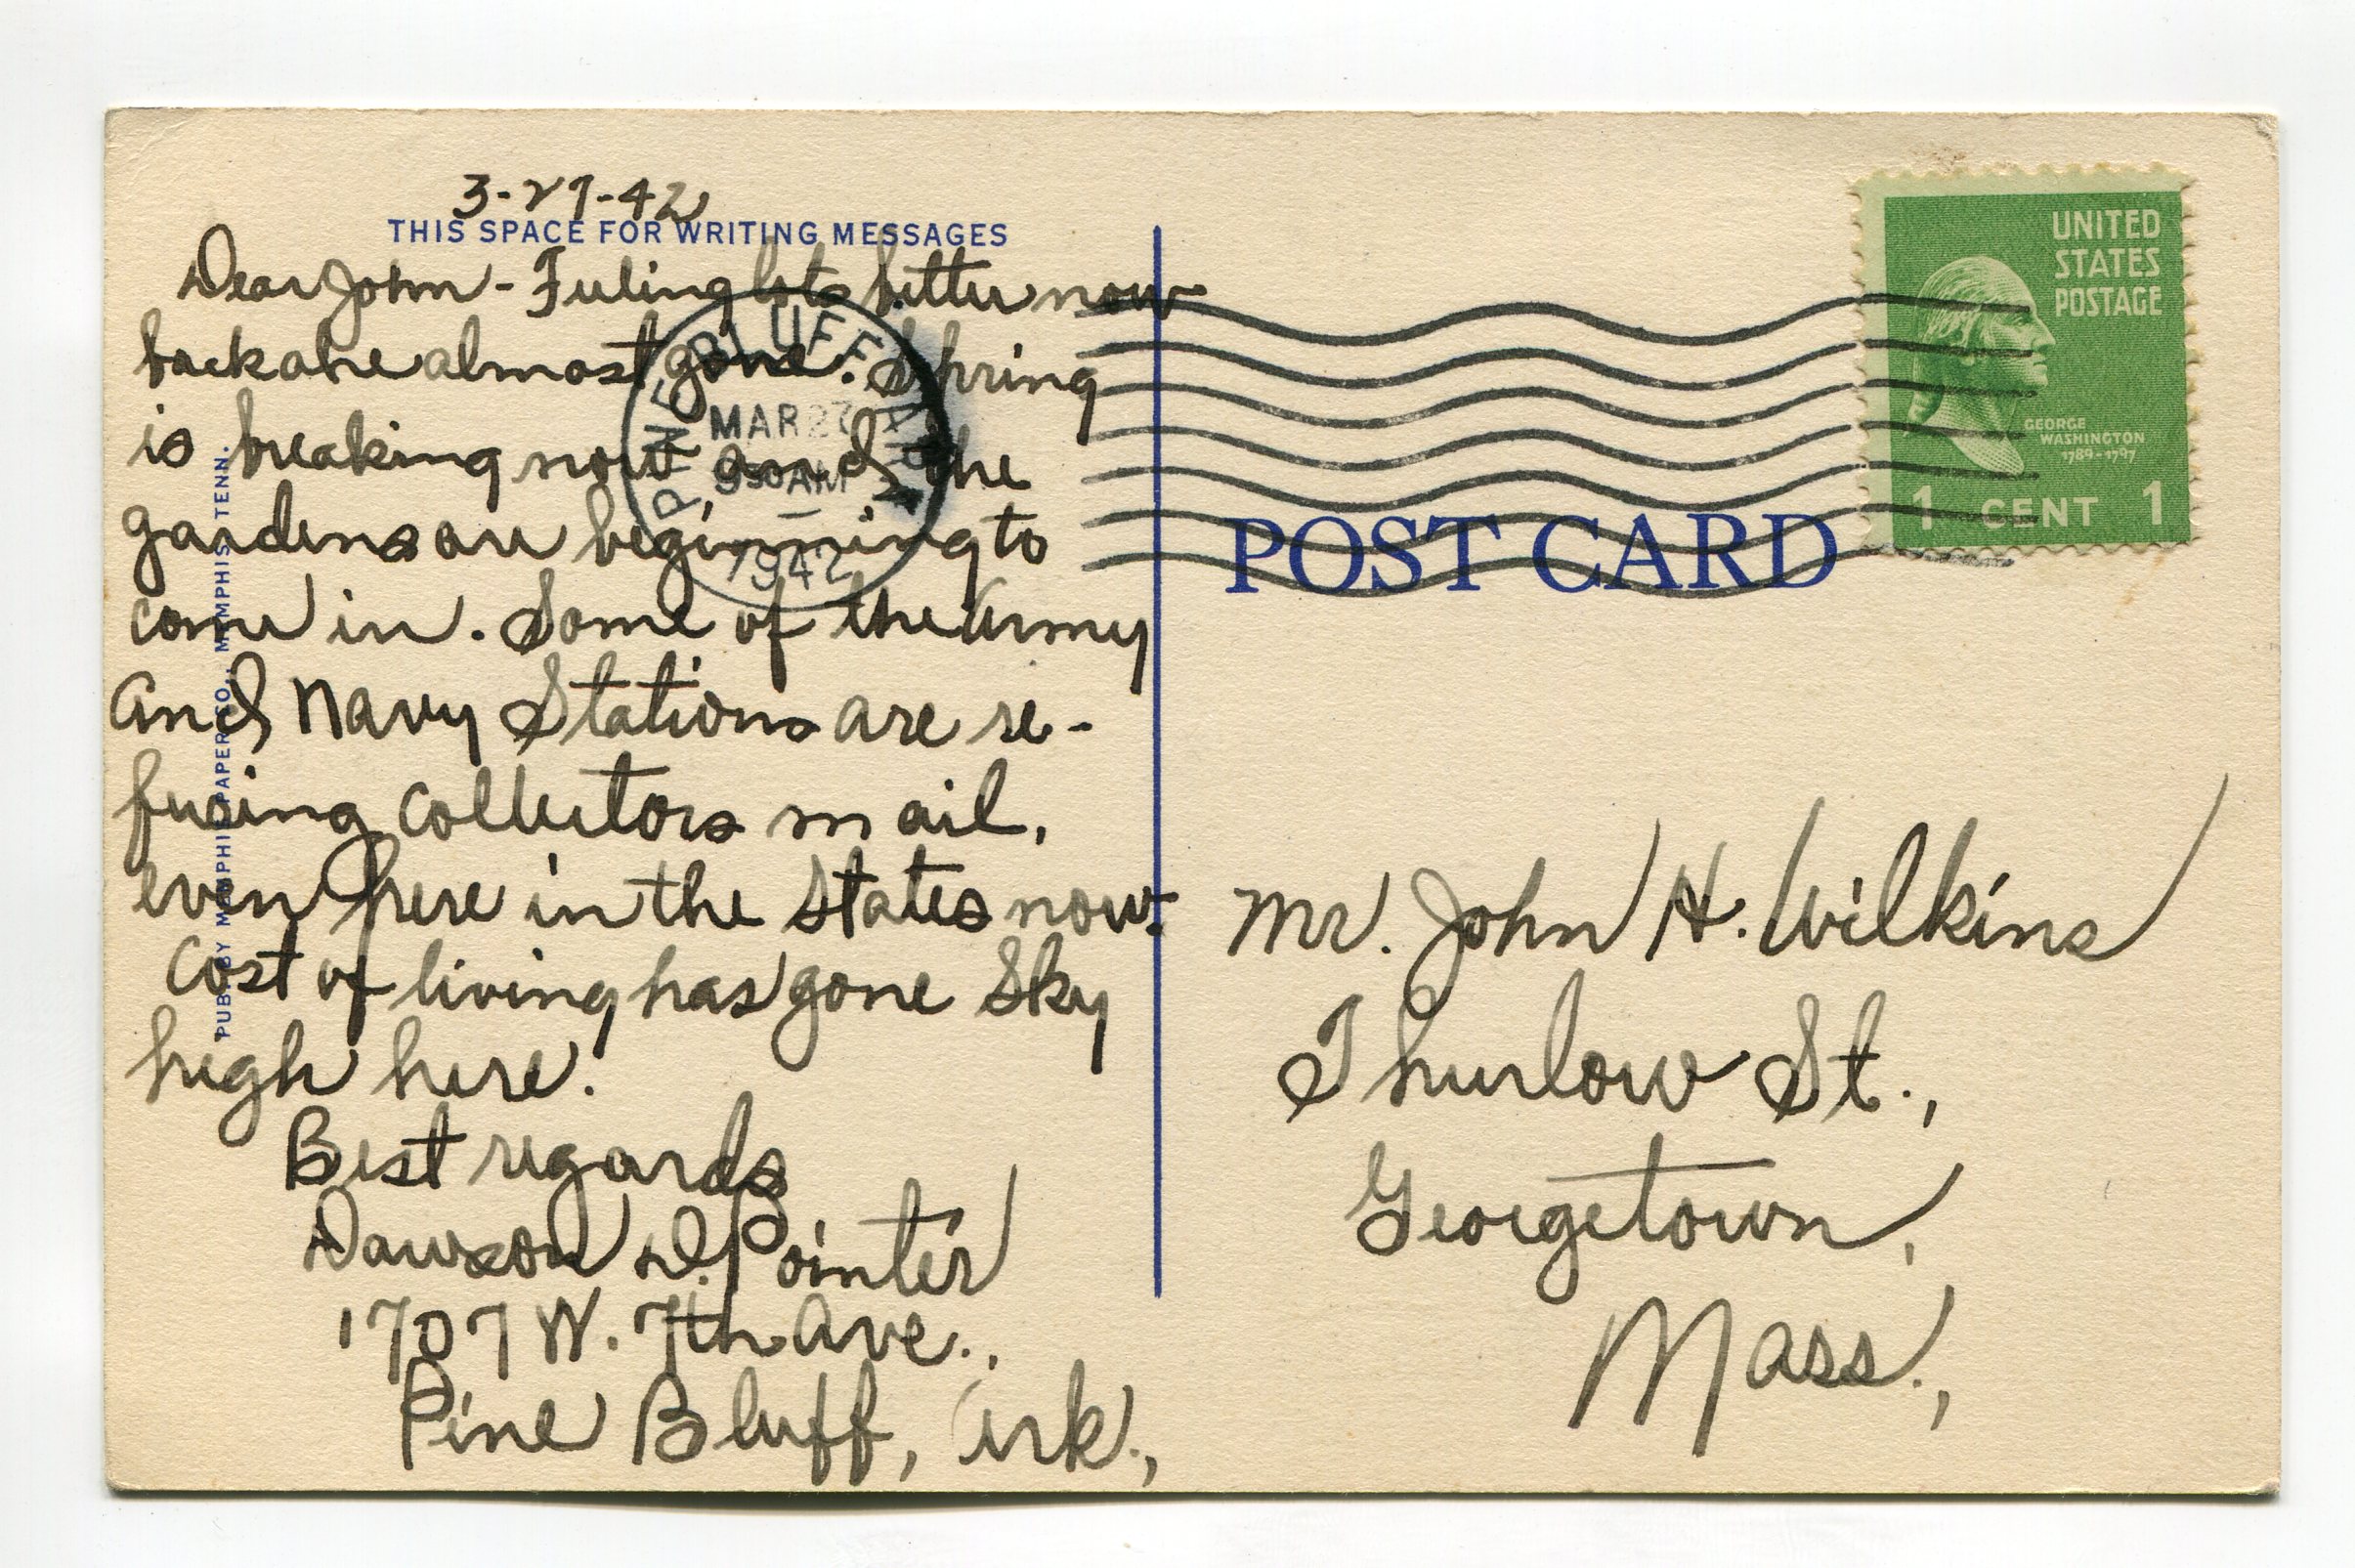 3-27-42
THIS SPACE FOR WRITING MESSAGES
Dear John - Feeling lots better now
backache almost gone. Spring
is breaking now, and the
gardens are beginning to
come in. Some of the Army
and Navy Stations are re-
fusing collectors mail,
even here in the States now.
Cost of living has gone sky
high here.
Best regards
Dawson D. Pointer
1707 W. 7th Ave.,
Pine Bluff, Ark.,
PUB. BY MEMPHIS PAPER CO., MEMPHIS, TENN.
PINE BLUFF ARK.
MAR 27
930 AM
1942
UNITED
STATES
POSTAGE
GEORGE
WASHINGTON
1789-1797
1 CENT 1
POST CARD
Mr. John H. Wilkins
Thurlow St.,
Georgetown,
Mass.,